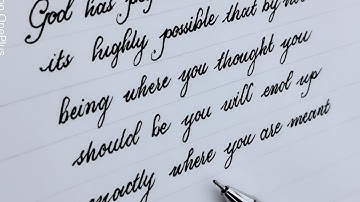 God has
its hughly possible that by
being where you thought you
should be you will end up
exactly where you are meant
OnePlus